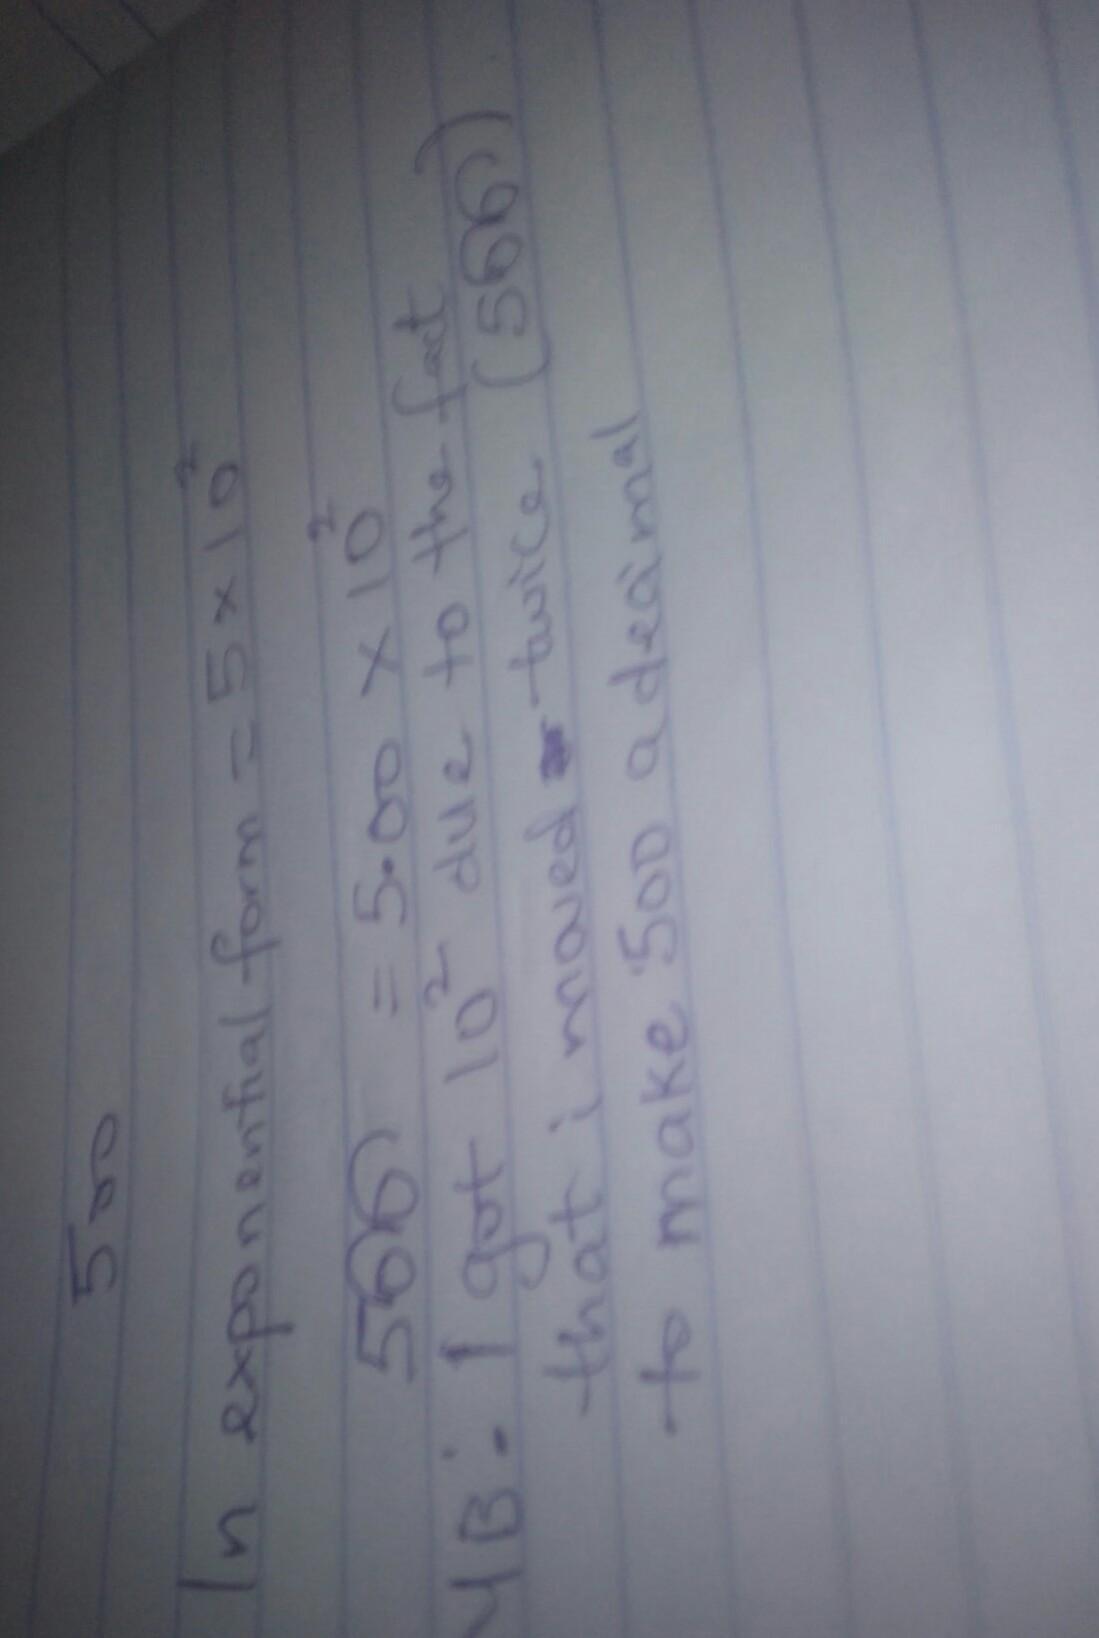 500
In exponential form = 5 × 10²
500 = 5.00 × 10²
NB: I got 10² due to the fact
that i moved twice (500)
to make 500 a decimal